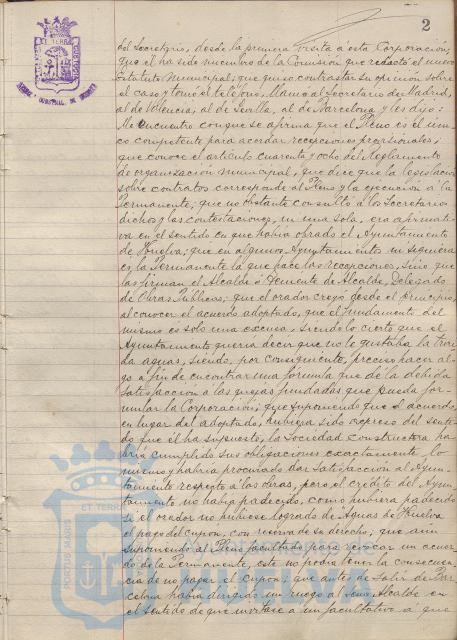 2
del Secretario, desde la primera visita a ésta Corporación,
que el ha sido miembro de la Comisión que redactó el nuevo
Estatuto Municipal; que quiso contrastar su opinión sobre
el caso y tomó el teléfono, llamó al Secretario de Madrid,
al de Valencia, al de Sevilla, al de Barcelona y les dijó:
Me encuentro con que se afirma que el Pleno es el úni-
co competente para acordar recepciones provisionales;
que conoce el artículo cuarenta y ocho del Reglamento
de organización municipal, que dice que la legislación
sobre contratos corresponde al Pleno y la ejecución a la
Permanente; que no obstante consultó a los Secretarios
dichos y las contestaciones, en una sola, era afirmati-
va en el sentido en que había obrado el Ayuntamiento
de Huelva; que en algunos Ayuntamientos ni siquiera
es la Permanente la que hace las recepciones, sino que
las firman el Alcalde o Teniente de Alcalde, Delegado
de Obras Públicas; que el orador creyó desde el principio,
al conocer el acuerdo adoptado, que el fundamento del
mismo es solo una excusa, siendo lo cierto que el
Ayuntamiento quería decir que no le gustaba la traí-
da aguas, siendo, por consiguiente, preciso hacer al-
go a fin de encontrar una fórmula que dé la debida
satisfacción a las quejas fundadas que pueda for-
mular la Corporación; que suponiendo que el acuerdo,
en lugar del adoptado, hubiera sido expreso del senti-
do que él ha supuesto, la Sociedad Constructora ha-
bría cumplido sus obligaciones exactamente lo
mismo y habría procurado dar satisfacción al Ayun-
tamiento respecto a las obras, pero el crédito del Ayun-
tamiento no había padecido, como hubiera padecido
si el orador no hubiese logrado de Aguas de Huelva
el pago del cupón, con reserva de su derecho; que aún
suponiendo al Pleno facultado para revocar un acuer-
do de la Permanente, este no podía tener la consecuen-
cia de no pagar el cupón; que antes de salir de Bar-
celona había dirigido un ruego al Señor Alcalde en
el sentido de que invitase a un facultativo a que